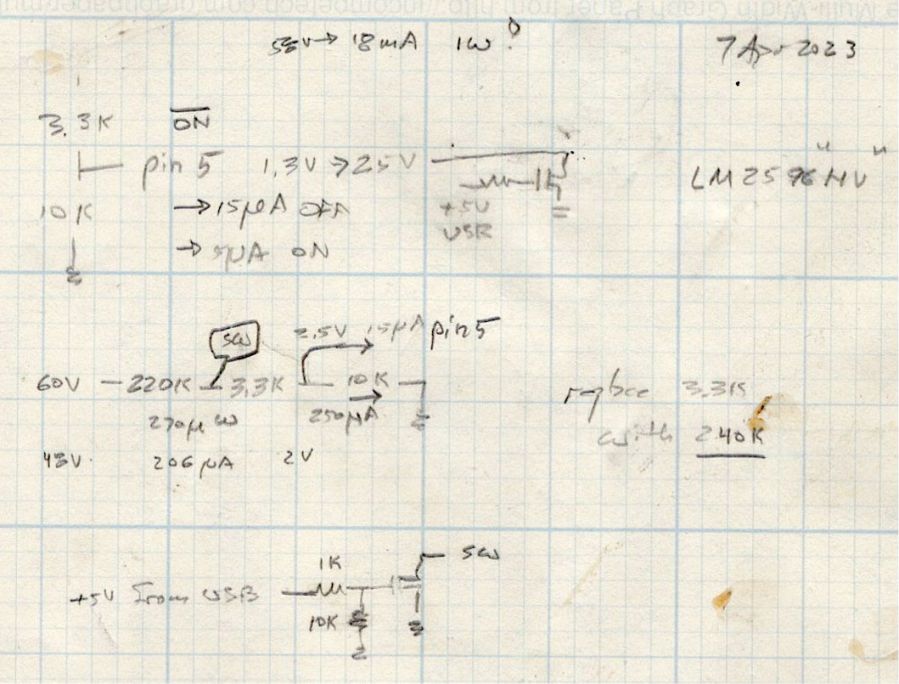 e Multi-Width Graph Paper from http://incompetech.com/graphpaper/mu
55V → 18mA 1W?
7 Apr 2023
3.3K ON
pin 5 1.3V → 25V
LM2596"HV"
10K → 15μA OFF
+5V
USB
→ 5μA ON
SW
2.5V 15μA pin 5
60V 220K 3.3K 10K
replace 3.3K
270μW 250μA
with 240K
48V 206μA 2V
1K SW
+5V From USB
10K